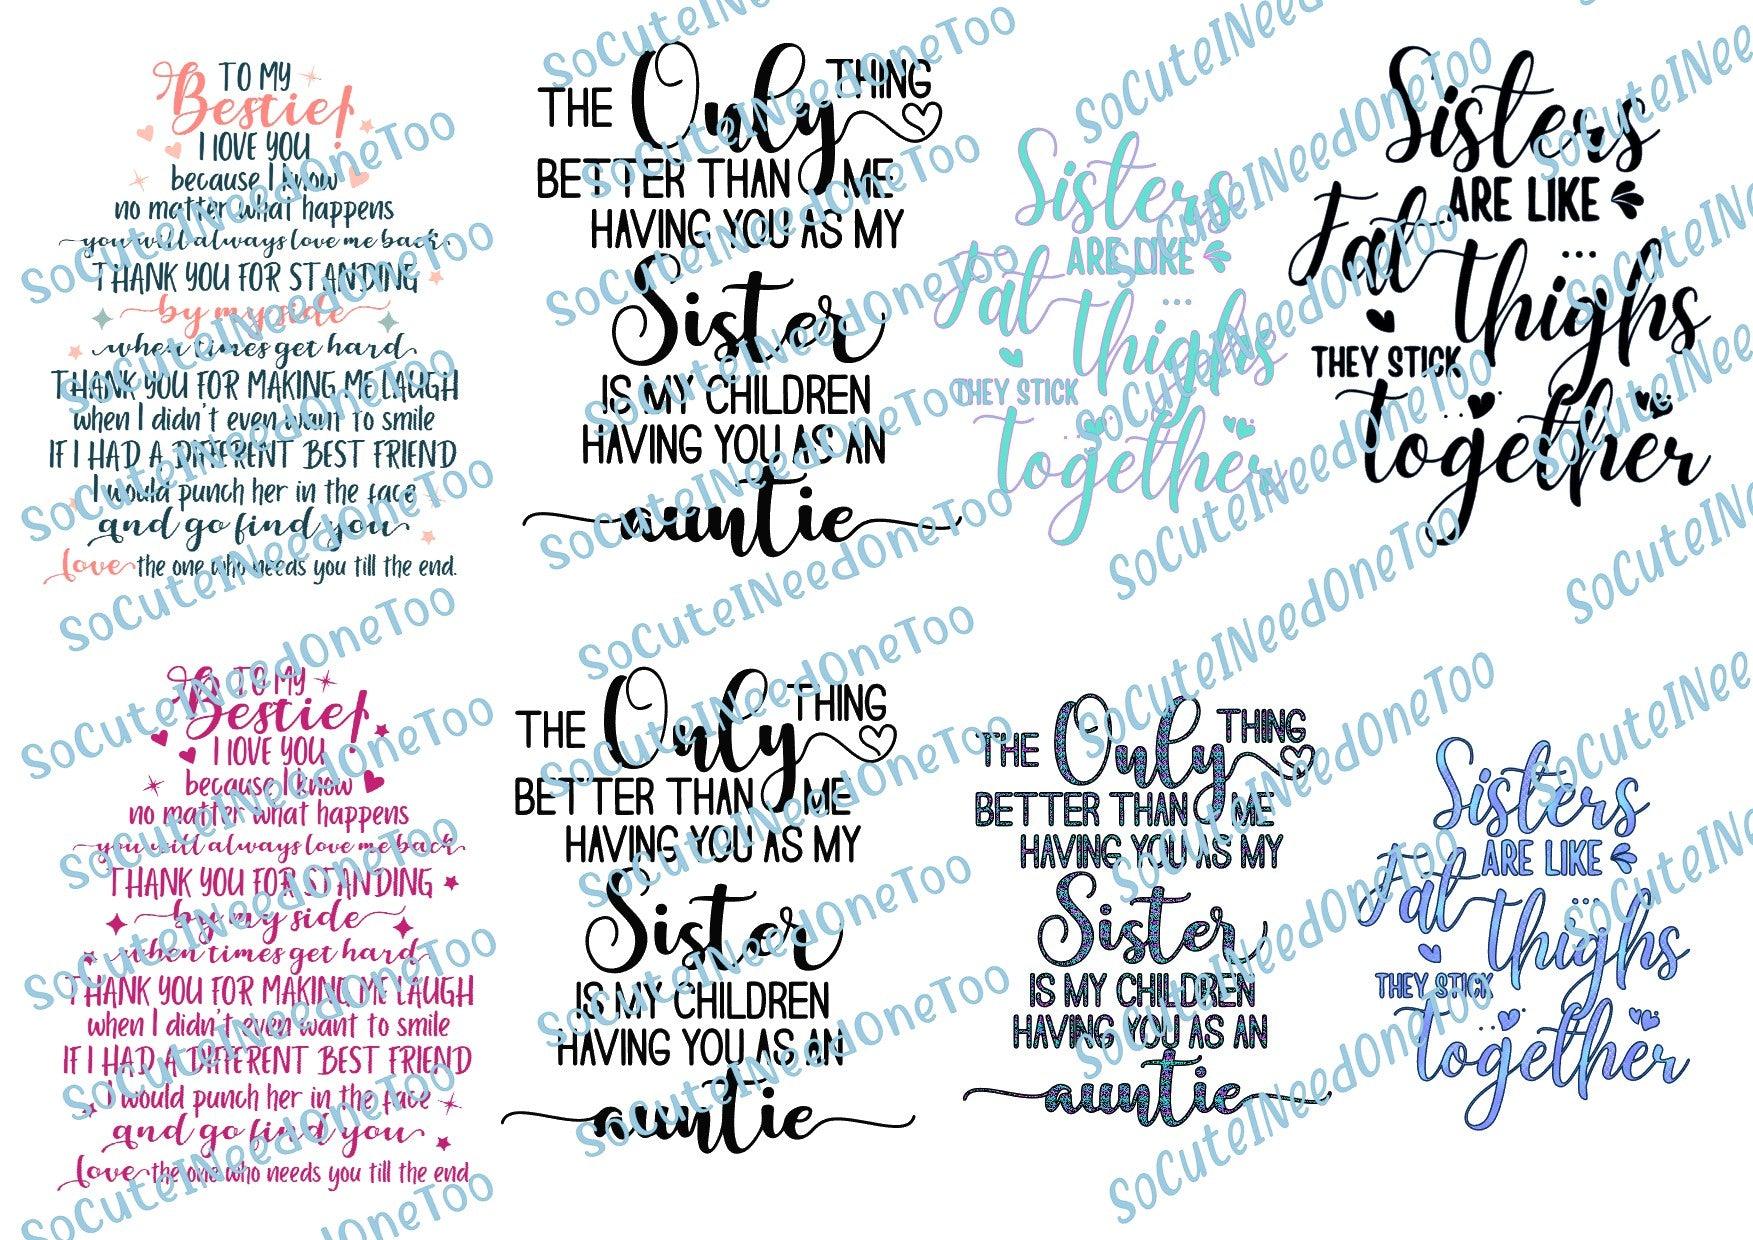 TO MY
Bestie!
I LOVE YOU
because I know
no matter what happens
you will always love me back.
THANK YOU FOR STANDING
by my side
when times get hard.
THANK YOU FOR MAKING ME LAUGH
when I didn't even want to smile
IF I HAD A DIFFERENT BEST FRIEND
I would punch her in the face
and go find you
Love the one who needs you till the end.
THE Only THING
BETTER THAN ME
HAVING YOU AS MY
Sister
IS MY CHILDREN
HAVING YOU AS AN
auntie
Sisters
ARE LIKE
Fat ...
thighs
THEY STICK
together
Sisters
ARE LIKE
Fat ...
thighs
THEY STICK
together
TO MY
Bestie!
I LOVE YOU
because I know
no matter what happens
you will always love me back.
THANK YOU FOR STANDING
by my side
when times get hard.
THANK YOU FOR MAKING ME LAUGH
when I didn't even want to smile
IF I HAD A DIFFERENT BEST FRIEND
I would punch her in the face
and go find you
Love the one who needs you till the end.
THE Only THING
BETTER THAN ME
HAVING YOU AS MY
Sister
IS MY CHILDREN
HAVING YOU AS AN
auntie
THE Only THING
BETTER THAN ME
HAVING YOU AS MY
Sister
IS MY CHILDREN
HAVING YOU AS AN
auntie
Sisters
ARE LIKE
Fat ...
thighs
THEY STICK
together
SoCuteINeedOneToo